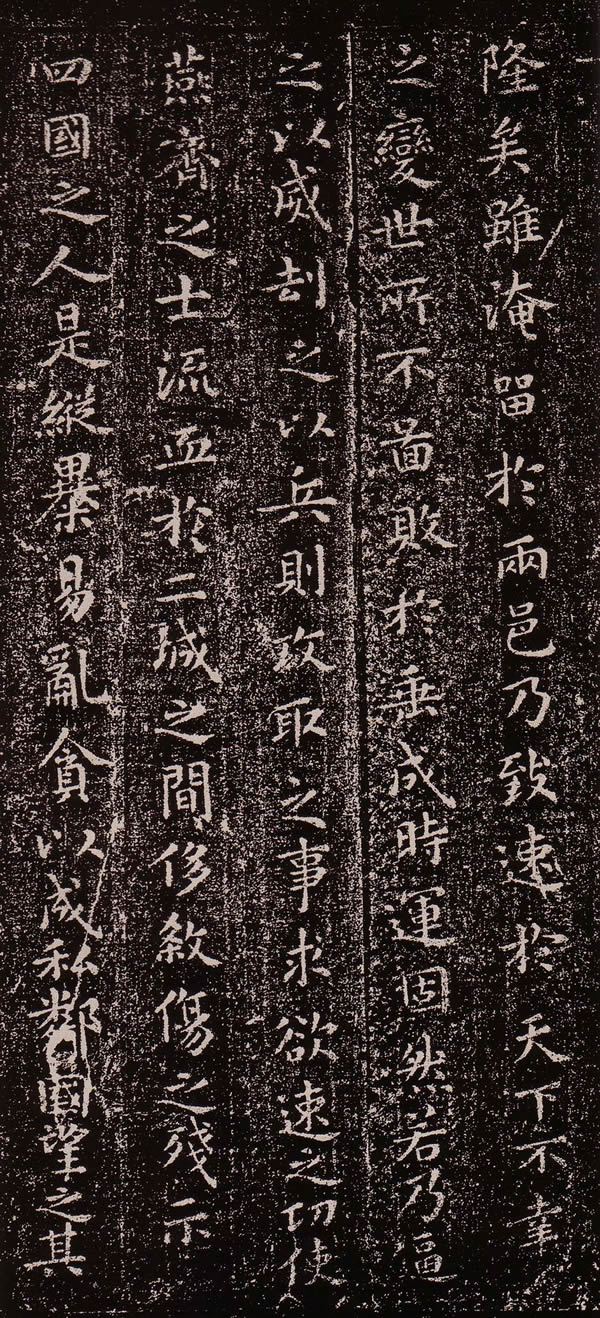 隆矣雖淹留於兩邑乃致速於天下不幸
之變世所不啚敗於垂成時運固然若乃逼
之以威劫之以兵則攻取之事求欲速之功使
燕齊之士流血於二城之間侈殺傷之殘示
四國之人是縱暴易亂貪以成私鄰國望之其